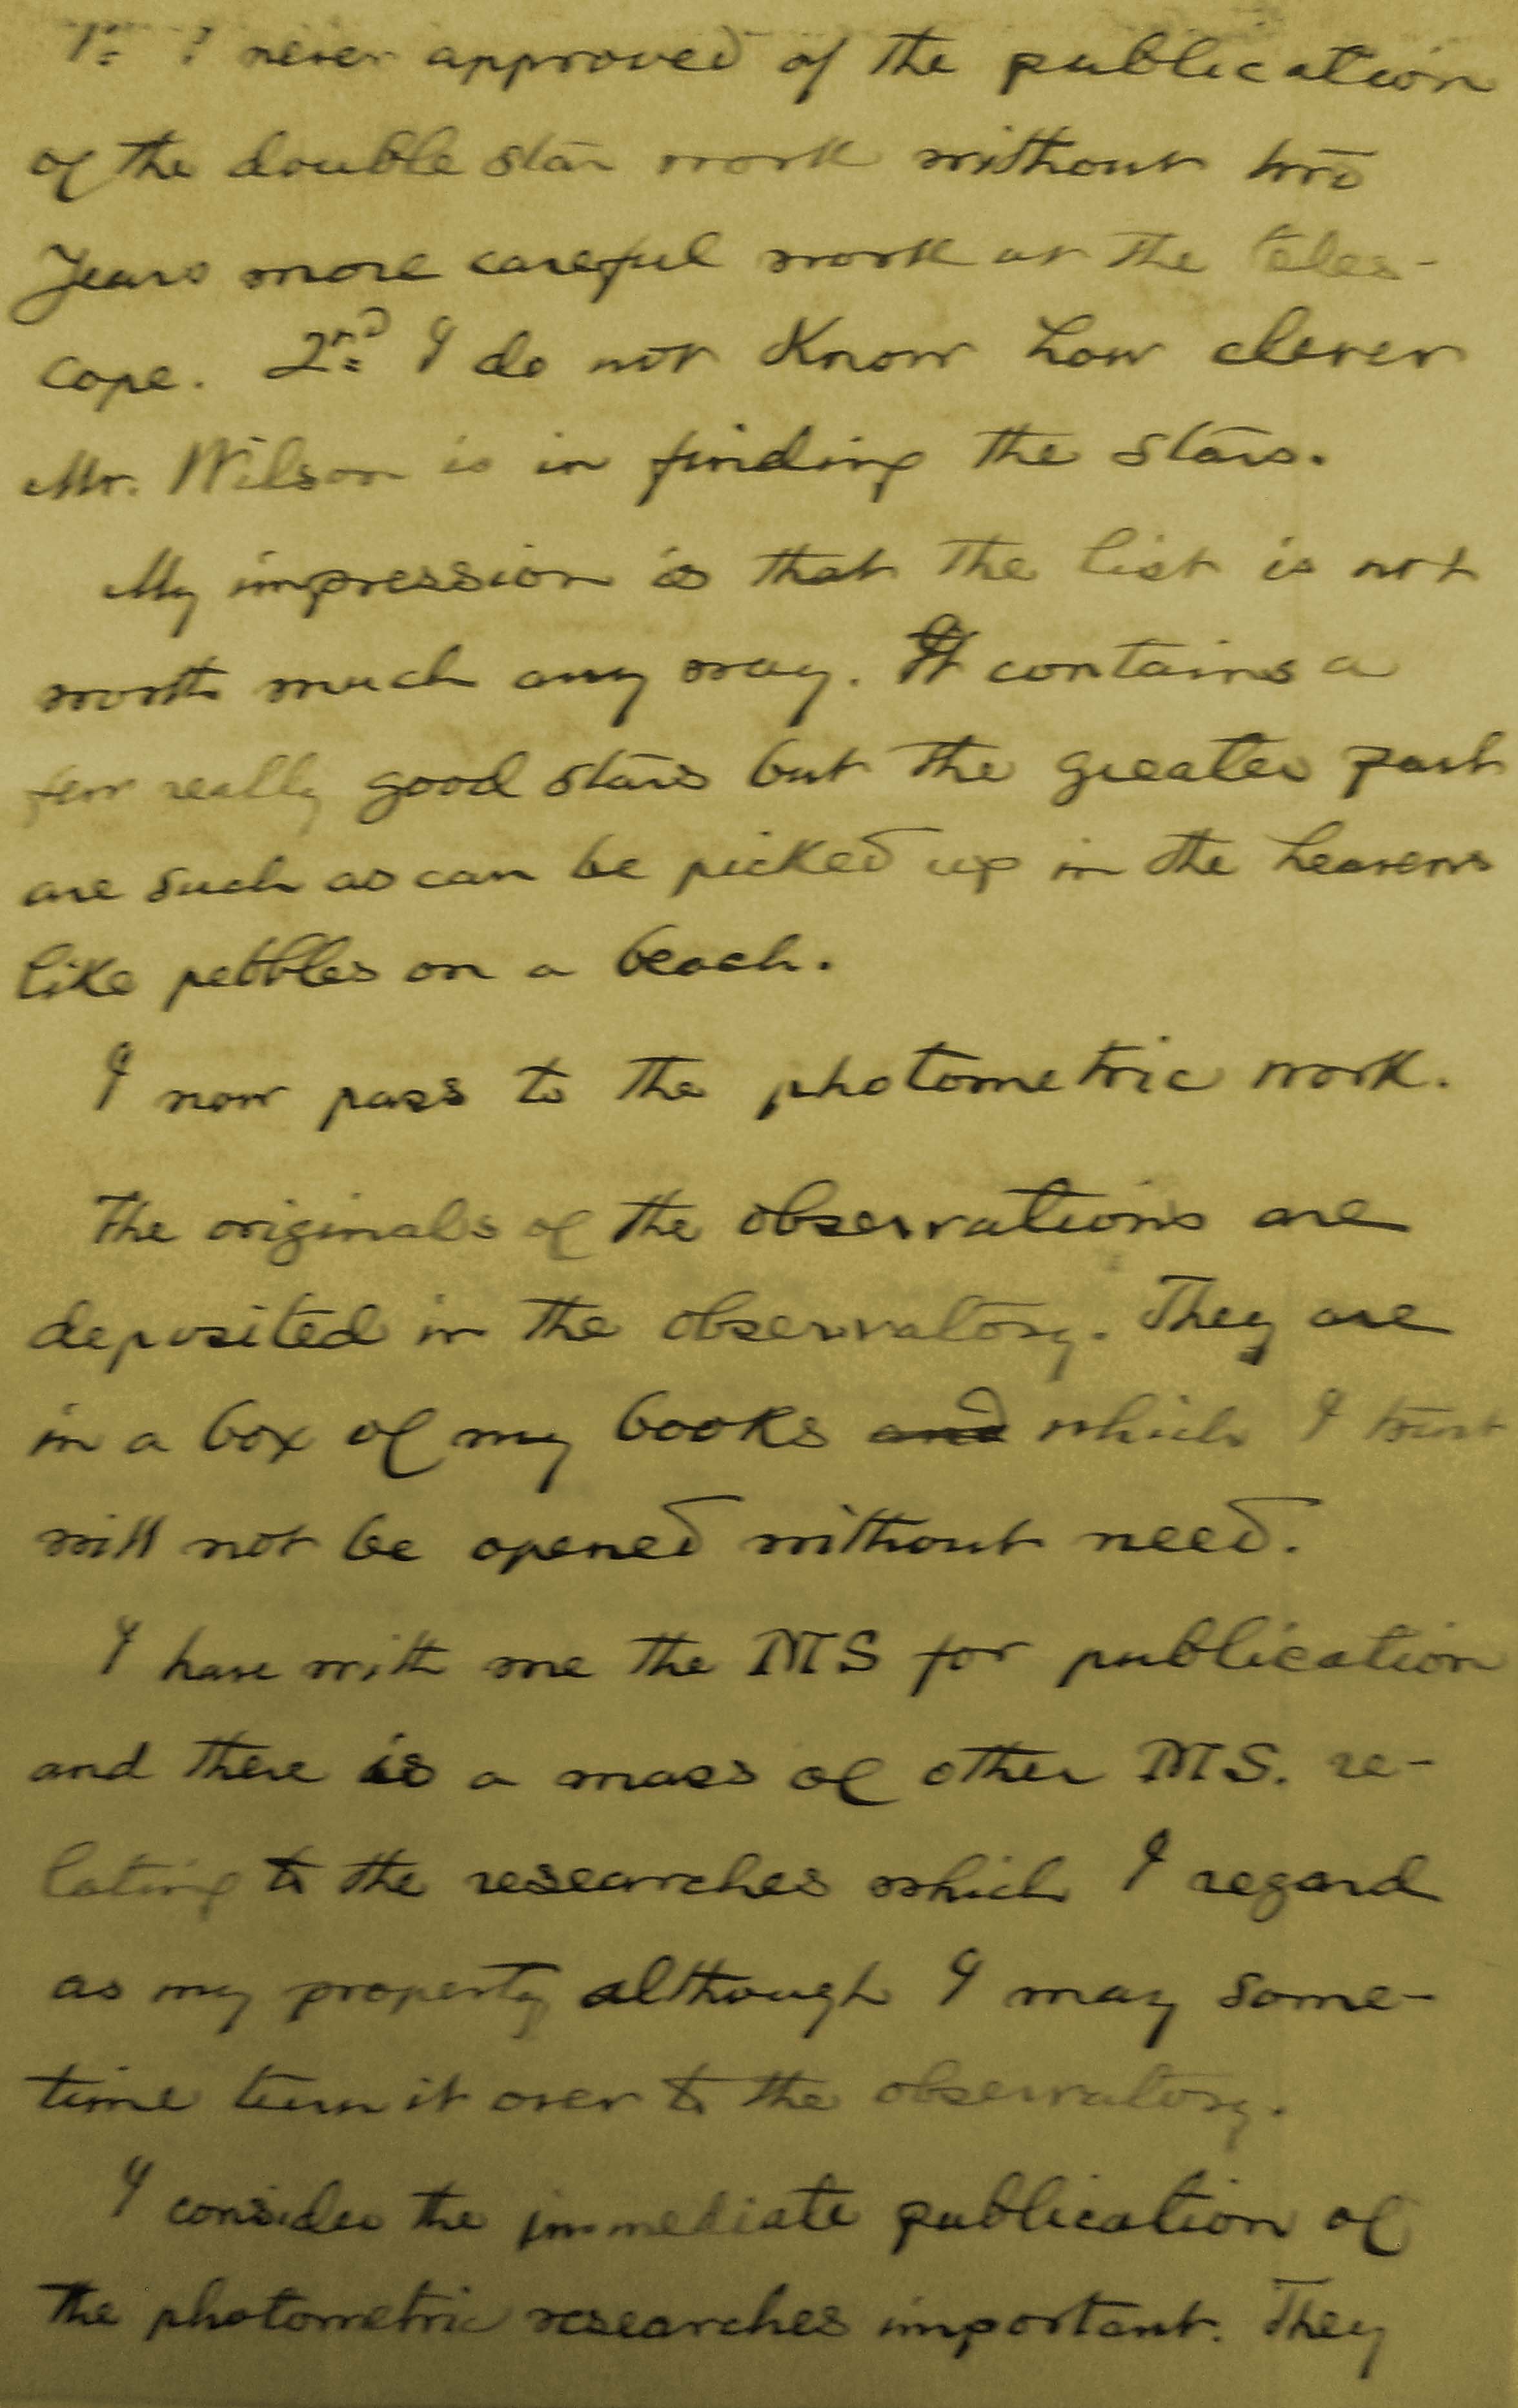 1st I never approved of the publication
of the double star work without two
years more careful work at the teles-
cope. 2nd I do not know how clever
Mr. Wilson is in finding the stars.
My impression is that the list is not
worth much any way. It contains a
few really good stars but the greater part
are such as can be picked up in the heavens
like pebbles on a beach.
I now pass to the photometric work.
The originals of the observations are
deposited in the observatory. They are
in a box of my books and which I trust
will not be opened without need.
I have with me the MS for publication
and there is a mass of other MS. re-
lating to the researches which I regard
as my property although I may some-
time turn it over to the observatory.
I consider the immediate publication of
the photometric researches important. They